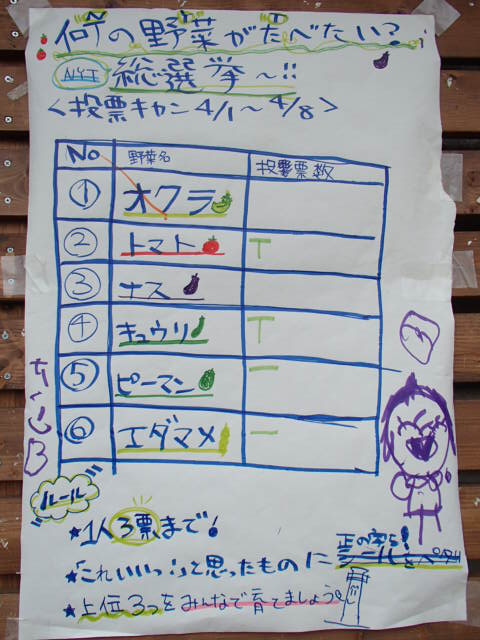 何の野菜がたべたい?
総選挙~!!
<投票キカン4/1~4/8>
No 野菜名 投票数
① オクラ
② トマト T
③ ナス
④ キュウリ T
⑤ ピーマン 一
⑥ エダマメ 一
ルール
★1人3票まで!
★「これいいっ!」と思ったものに
正の字を!
★上位3つをみんなで育てましょう